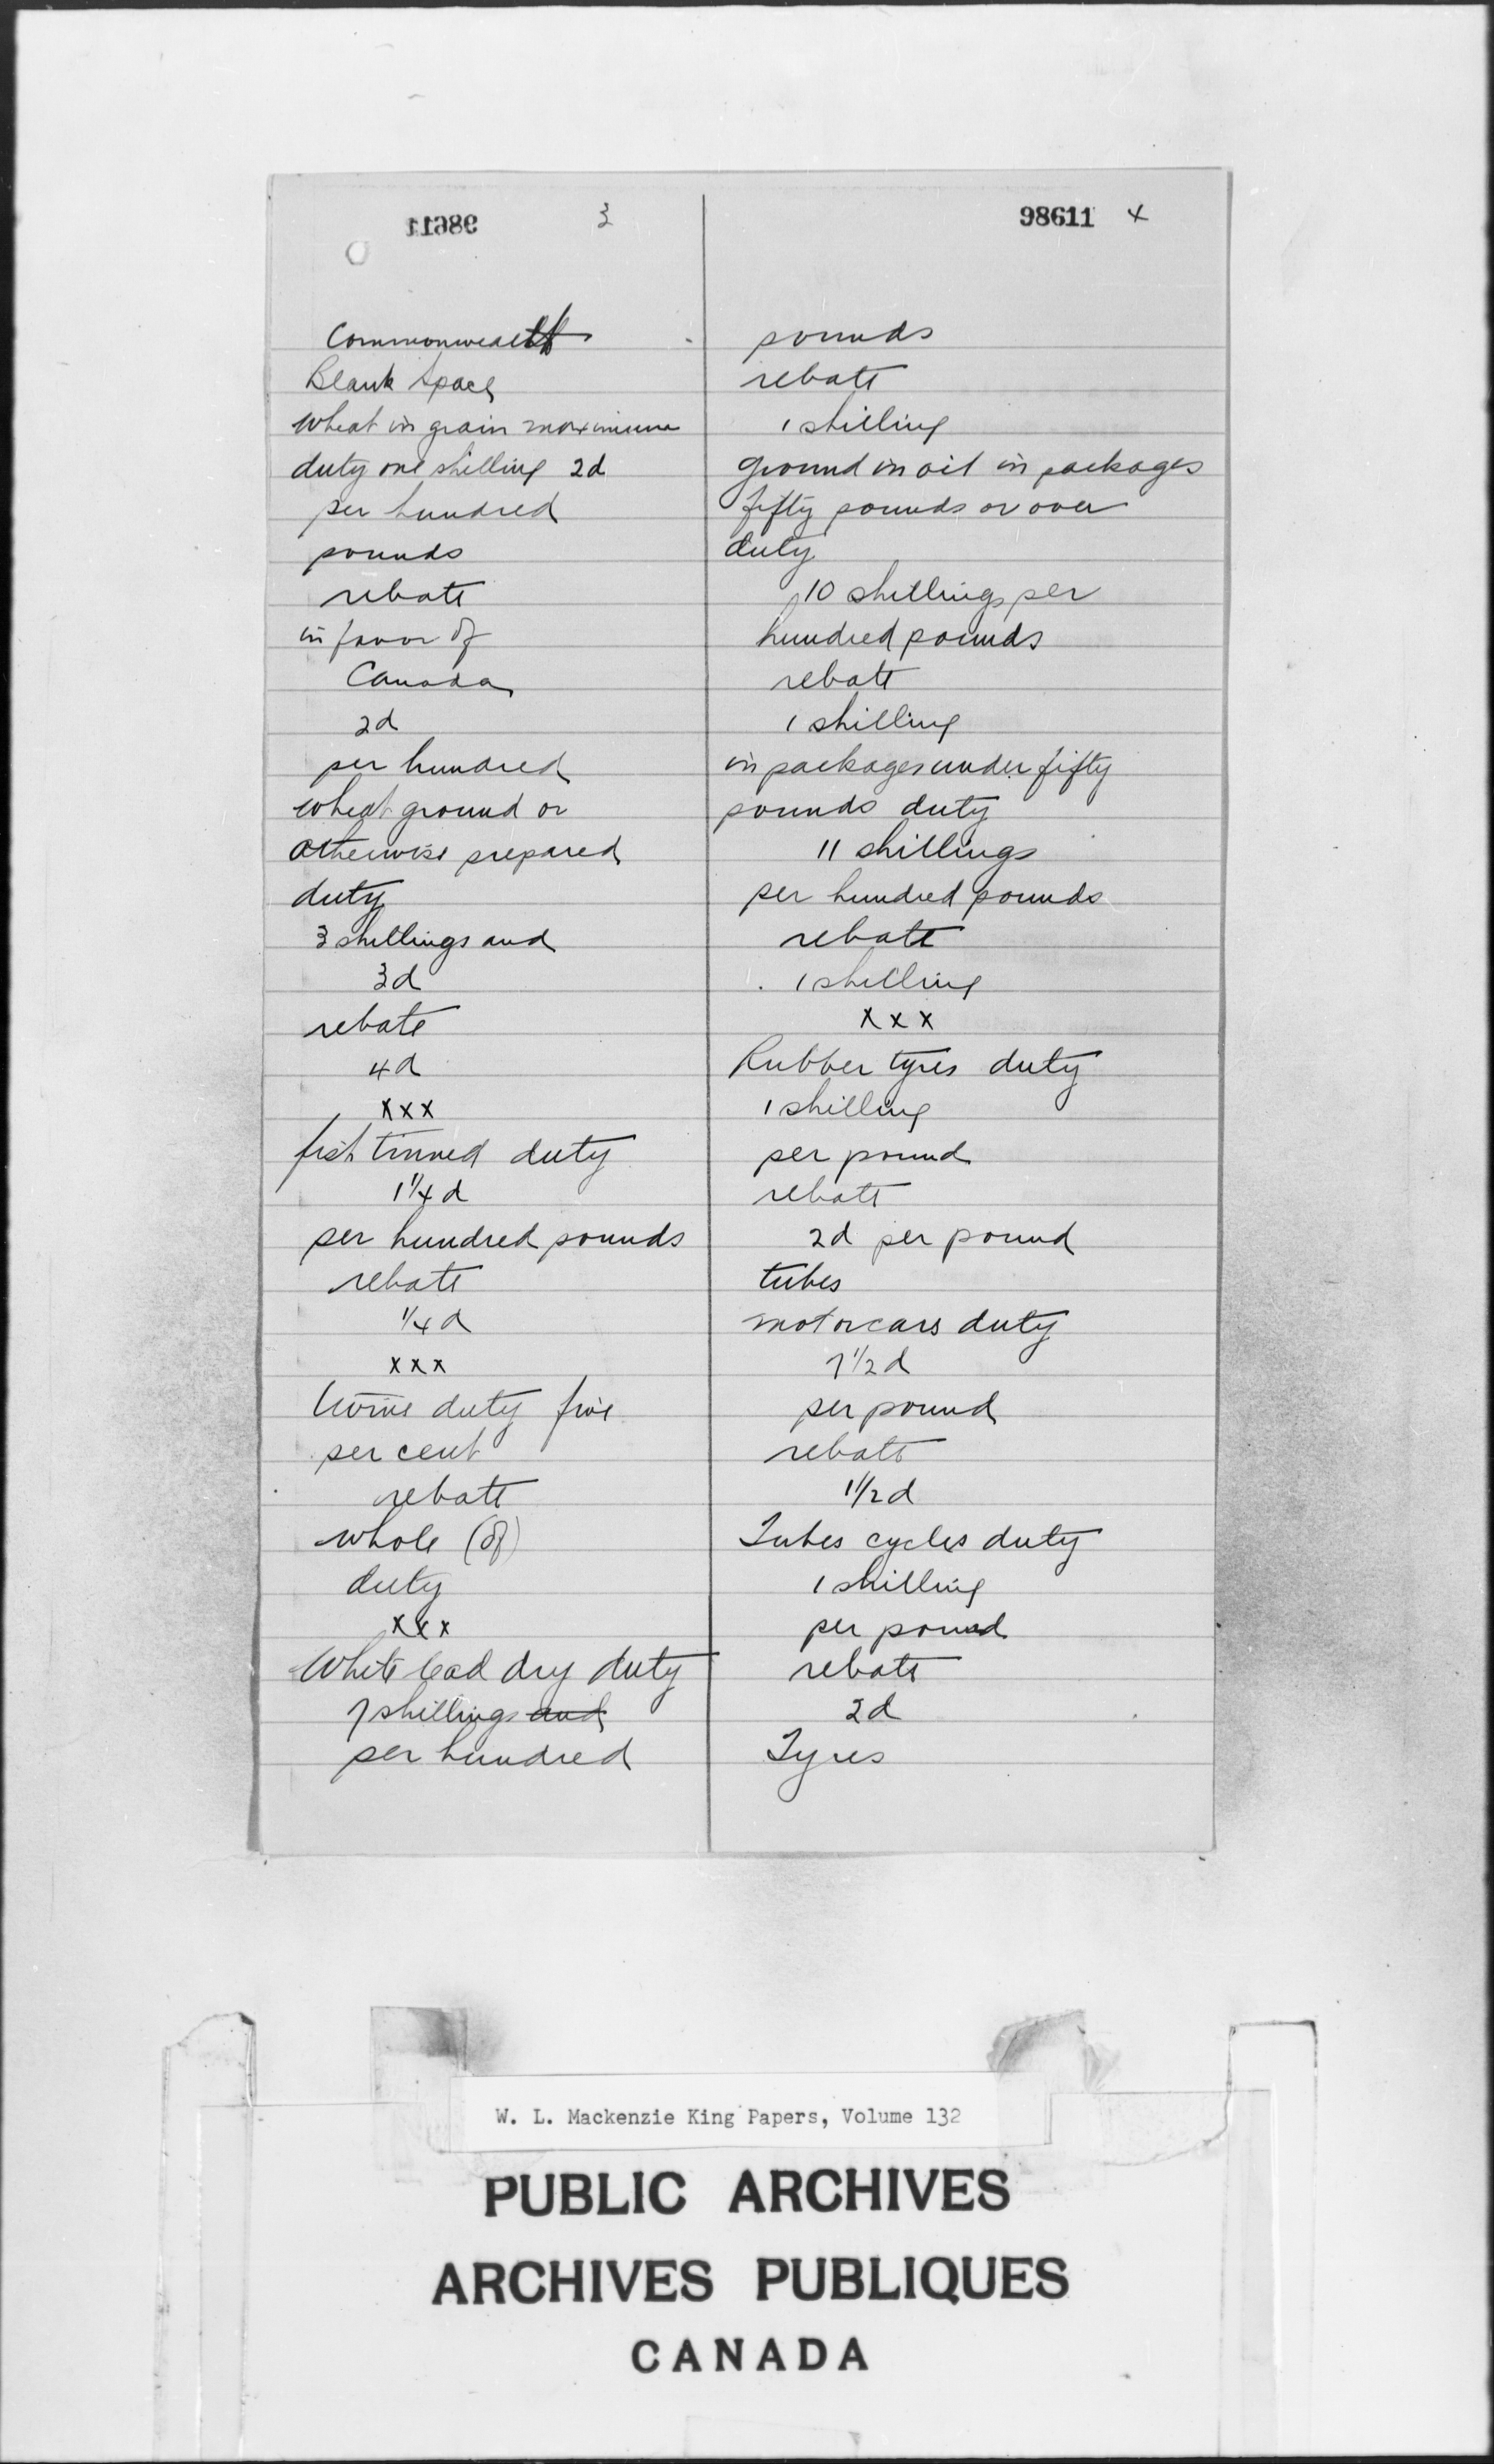 98611 3
Commonwealth
Blank Space
wheat in grain maximum
duty one shilling 2d
per hundred
pounds
rebate
in favor of
Canada
2d
per hundred
wheat ground or
otherwise prepared
duty
3 shillings and
3d
rebate
4d
xxx
fish tinned duty
1 1/4 d
per hundred pounds
rebate
1/4 d
xxx
duty five
per cent
rebate
whole (of)
duty
xxx
White lead dry duty
7 shillings and
per hundred
98611 4
pounds
rebate
1 shilling
ground in oil in packages
fifty pounds or over
duty
10 shillings per
hundred pounds
rebate
1 shilling
in packages under fifty
pounds duty
11 shillings
per hundred pounds
rebate
1 shilling
xxx
Rubber tyres duty
1 shilling
per pound
rebate
2d per pound
tubes
motorcars duty
7 1/2 d
per pound
rebate
1 1/2 d
Tubes cycles duty
1 shilling
per pound
rebate
2d
Tyres
W. L. Mackenzie King Papers, Volume 132
PUBLIC ARCHIVES
ARCHIVES PUBLIQUES
CANADA